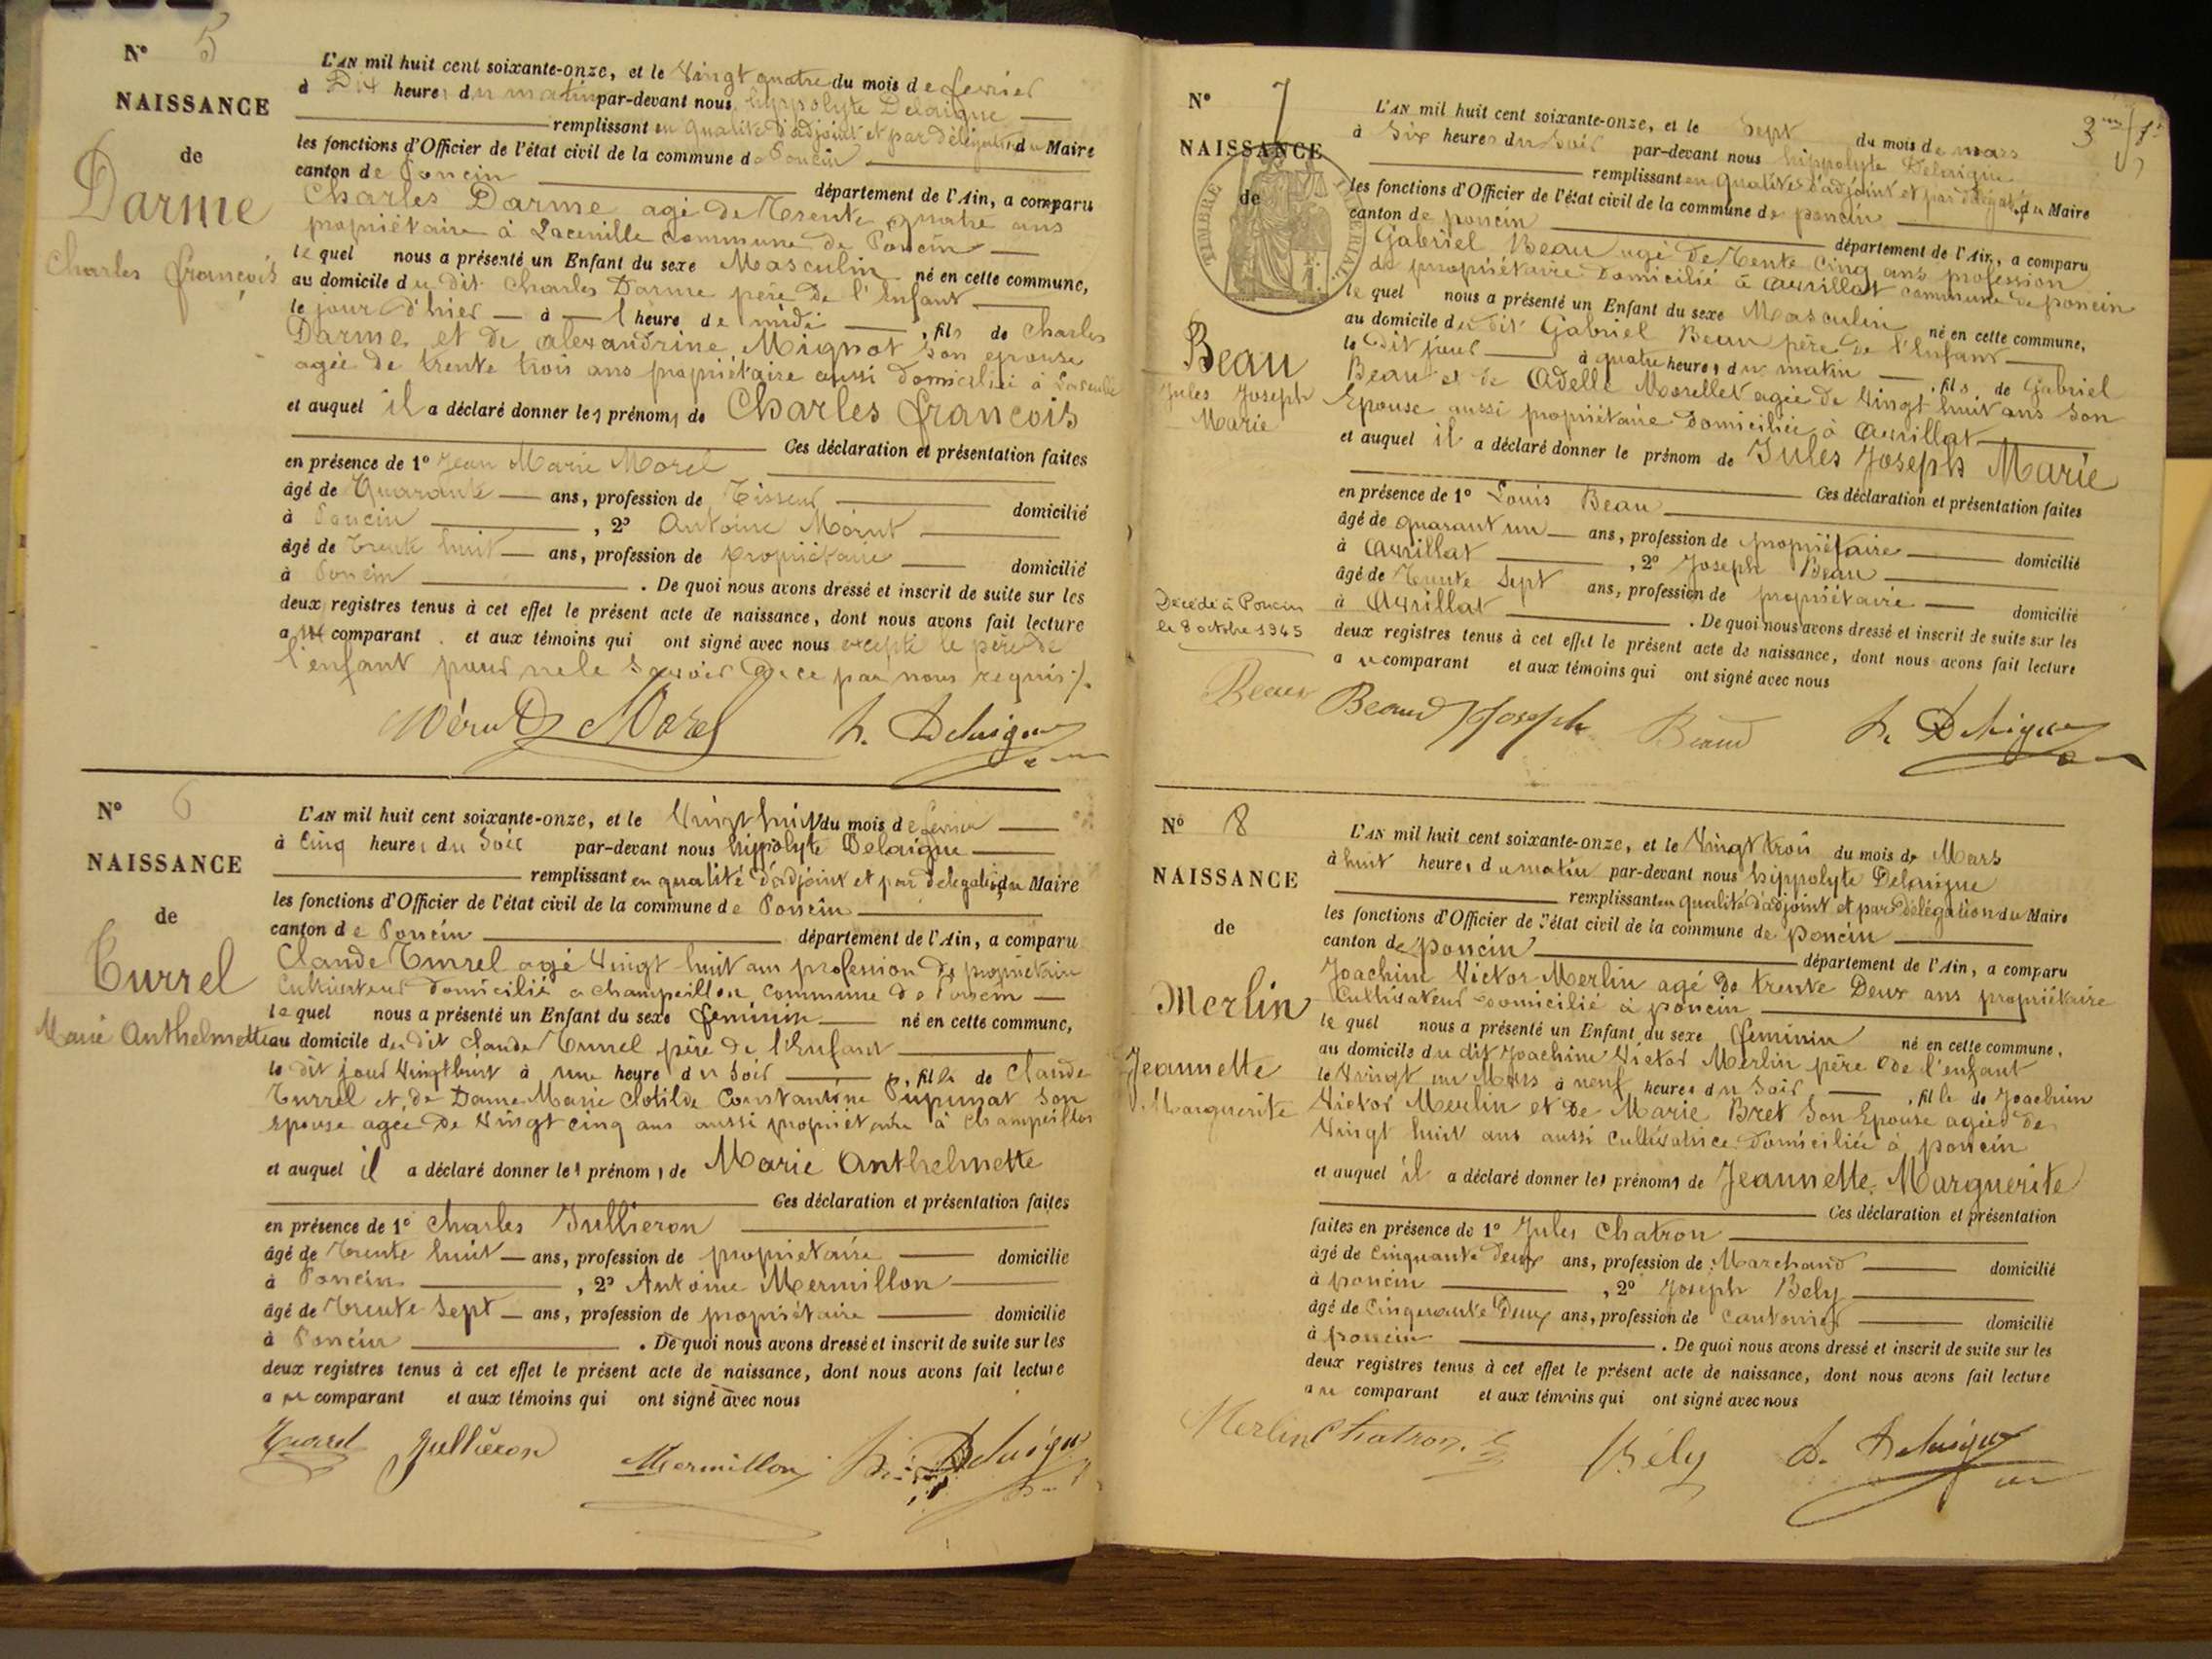 N° 5
NAISSANCE
de
Darme
Charles françois
L'AN mil huit cent soixante-onze, et le Vingt quatre du mois de fevrier
à Dix heures du matin par-devant nous hyppolyte Delaigue
remplissant en qualité d'adjoint et par délégation du Maire
les fonctions d'Officier de l'état civil de la commune de Poncin
canton de Poncin département de l'Ain, a comparu
Charles Darme agé de Trente quatre ans
propriétaire à commune de Poncin
le quel nous a présenté un Enfant du sexe Masculin né en cette commune,
au domicile du dit Charles Darme père de l'Enfant
le jour d'hier à 1 heure de midi , fils de Charles
Darme et de alexandrine Mignot son epouse
agée de trente trois ans propriétaire aussi domiciliée à
et auquel il a déclaré donner les prénoms de Charles françois
Ces déclaration et présentation faites
en présence de 1° Jean Marie Morel
âgé de Quarante ans, profession de Tisseur domicilié
à Poncin , 2° Antoine
âgé de trente huit ans, profession de propriétaire domicilié
à Poncin . De quoi nous avons dressé et inscrit de suite sur les
deux registres tenus à cet effet le présent acte de naissance, dont nous avons fait lecture
au comparant et aux témoins qui ont signé avec nous excepté le père de
l'enfant pour ne le savoir de ce par nous requis ./.
Morel h. Delaigue
N° 6
NAISSANCE
de
Turrel
Marie Anthelmette
L'AN mil huit cent soixante-onze, et le Vingt huit du mois de fevrier
à Cinq heures du Soir par-devant nous hippolyte Delaigue
remplissant en qualité d'adjoint et par delegation du Maire
les fonctions d'Officier de l'état civil de la commune de Poncin
canton de Poncin département de l'Ain, a comparu
Claude Turrel agé Vingt huit ans profession de propriétaire
Cultivateur domicilié a champeillon commune de Poncin
le quel nous a présenté un Enfant du sexe feminin né en cette commune,
au domicile du dit claude Turrel père de l'Enfant
le dit jour Vingt huit à une heure du Soir , fille de Claude
Turrel et de Dame Marie Clotilde Constantine Pupunat Son
epouse agée de Vingt cinq ans aussi propriétaire à Champeillon
et auquel il a déclaré donner les prénoms de Marie Anthelmette
Ces déclaration et présentation faites
en présence de 1° Charles Jullieron
âgé de Trente huit ans, profession de propriétaire domicilié
à Poncin , 2° Antoine Mermillon
âgé de Trente Sept ans, profession de propriétaire domicilié
à Poncin . De quoi nous avons dressé et inscrit de suite sur les
deux registres tenus à cet effet le présent acte de naissance, dont nous avons fait lecture
au comparant et aux témoins qui ont signé avec nous
Jullieron Mermillon h. Delaigue
3
N° 7
NAISSANCE
de
TIMBRE IMPERIAL
Beau
Jules Joseph
Marie
Décédé à Poncin
le 8 octobre 1945
L'AN mil huit cent soixante-onze, et le Sept du mois de mars
à Six heures du Soir par-devant nous hippolyte Delaigue
remplissant en qualité d'adjoint et par délégation du Maire
les fonctions d'Officier de l'état civil de la commune de poncin
canton de poncin département de l'Ain, a comparu
Gabriel Beau agé de Trente Cinq ans profession
de propriétaire domicilié à Avrillat commune de poncin
le quel nous a présenté un Enfant du sexe Masculin né en cette commune,
au domicile du dit Gabriel Beau père de l'Enfant
le dit jour à quatre heures du matin , fils de Gabriel
Beau et de Adelle Morellet agée de Vingt huit ans Son
Epouse aussi propriétaire domiciliée à Avrillat
et auquel il a déclaré donner le prénom de Jules Joseph Marie
Ces déclaration et présentation faites
en présence de 1° Louis Beau
âgé de quarant un ans, profession de propriétaire domicilié
à Avrillat , 2° Joseph Beau
âgé de Trente Sept ans, profession de propriétaire domicilié
à Avrillat . De quoi nous avons dressé et inscrit de suite sur les
deux registres tenus à cet effet le présent acte de naissance, dont nous avons fait lecture
au comparant et aux témoins qui ont signé avec nous
Beau Beaud Joseph Beaud h. Delaigue
N° 8
NAISSANCE
de
Merlin
Jeannette
Marguerite
L'AN mil huit cent soixante-onze, et le Vingt trois du mois de Mars
à huit heures du matin par-devant nous hippolyte Delaigue
remplissant en qualité d'adjoint et par délégation du Maire
les fonctions d'Officier de l'état civil de la commune de poncin
canton de poncin département de l'Ain, a comparu
Joachim Victor Merlin agé de trente Deux ans propriétaire
Cultivateur domicilié à poncin
le quel nous a présenté un Enfant du sexe feminin né en cette commune,
au domicile du dit Joachim Victor Merlin père de l'enfant
le Vingt un Mars à neuf heures du Soir , fille de Joachim
Victor Merlin et de Marie Bret Son Epouse agée de
Vingt huit ans aussi Cultivatrice domiciliée à poncin
et auquel il a déclaré donner les prénoms de Jeannette Marguerite
Ces déclaration et présentation
faites en présence de 1° Jules Chatron
âgé de Cinquante deux ans, profession de Marchand domicilié
à poncin , 2° Joseph Bely
âgé de Cinquante Deux ans, profession de Cantonier domicilié
à poncin . De quoi nous avons dressé et inscrit de suite sur les
deux registres tenus à cet effet le présent acte de naissance, dont nous avons fait lecture
au comparant et aux témoins qui ont signé avec nous
Merlin Chatron Bély h. Delaigue